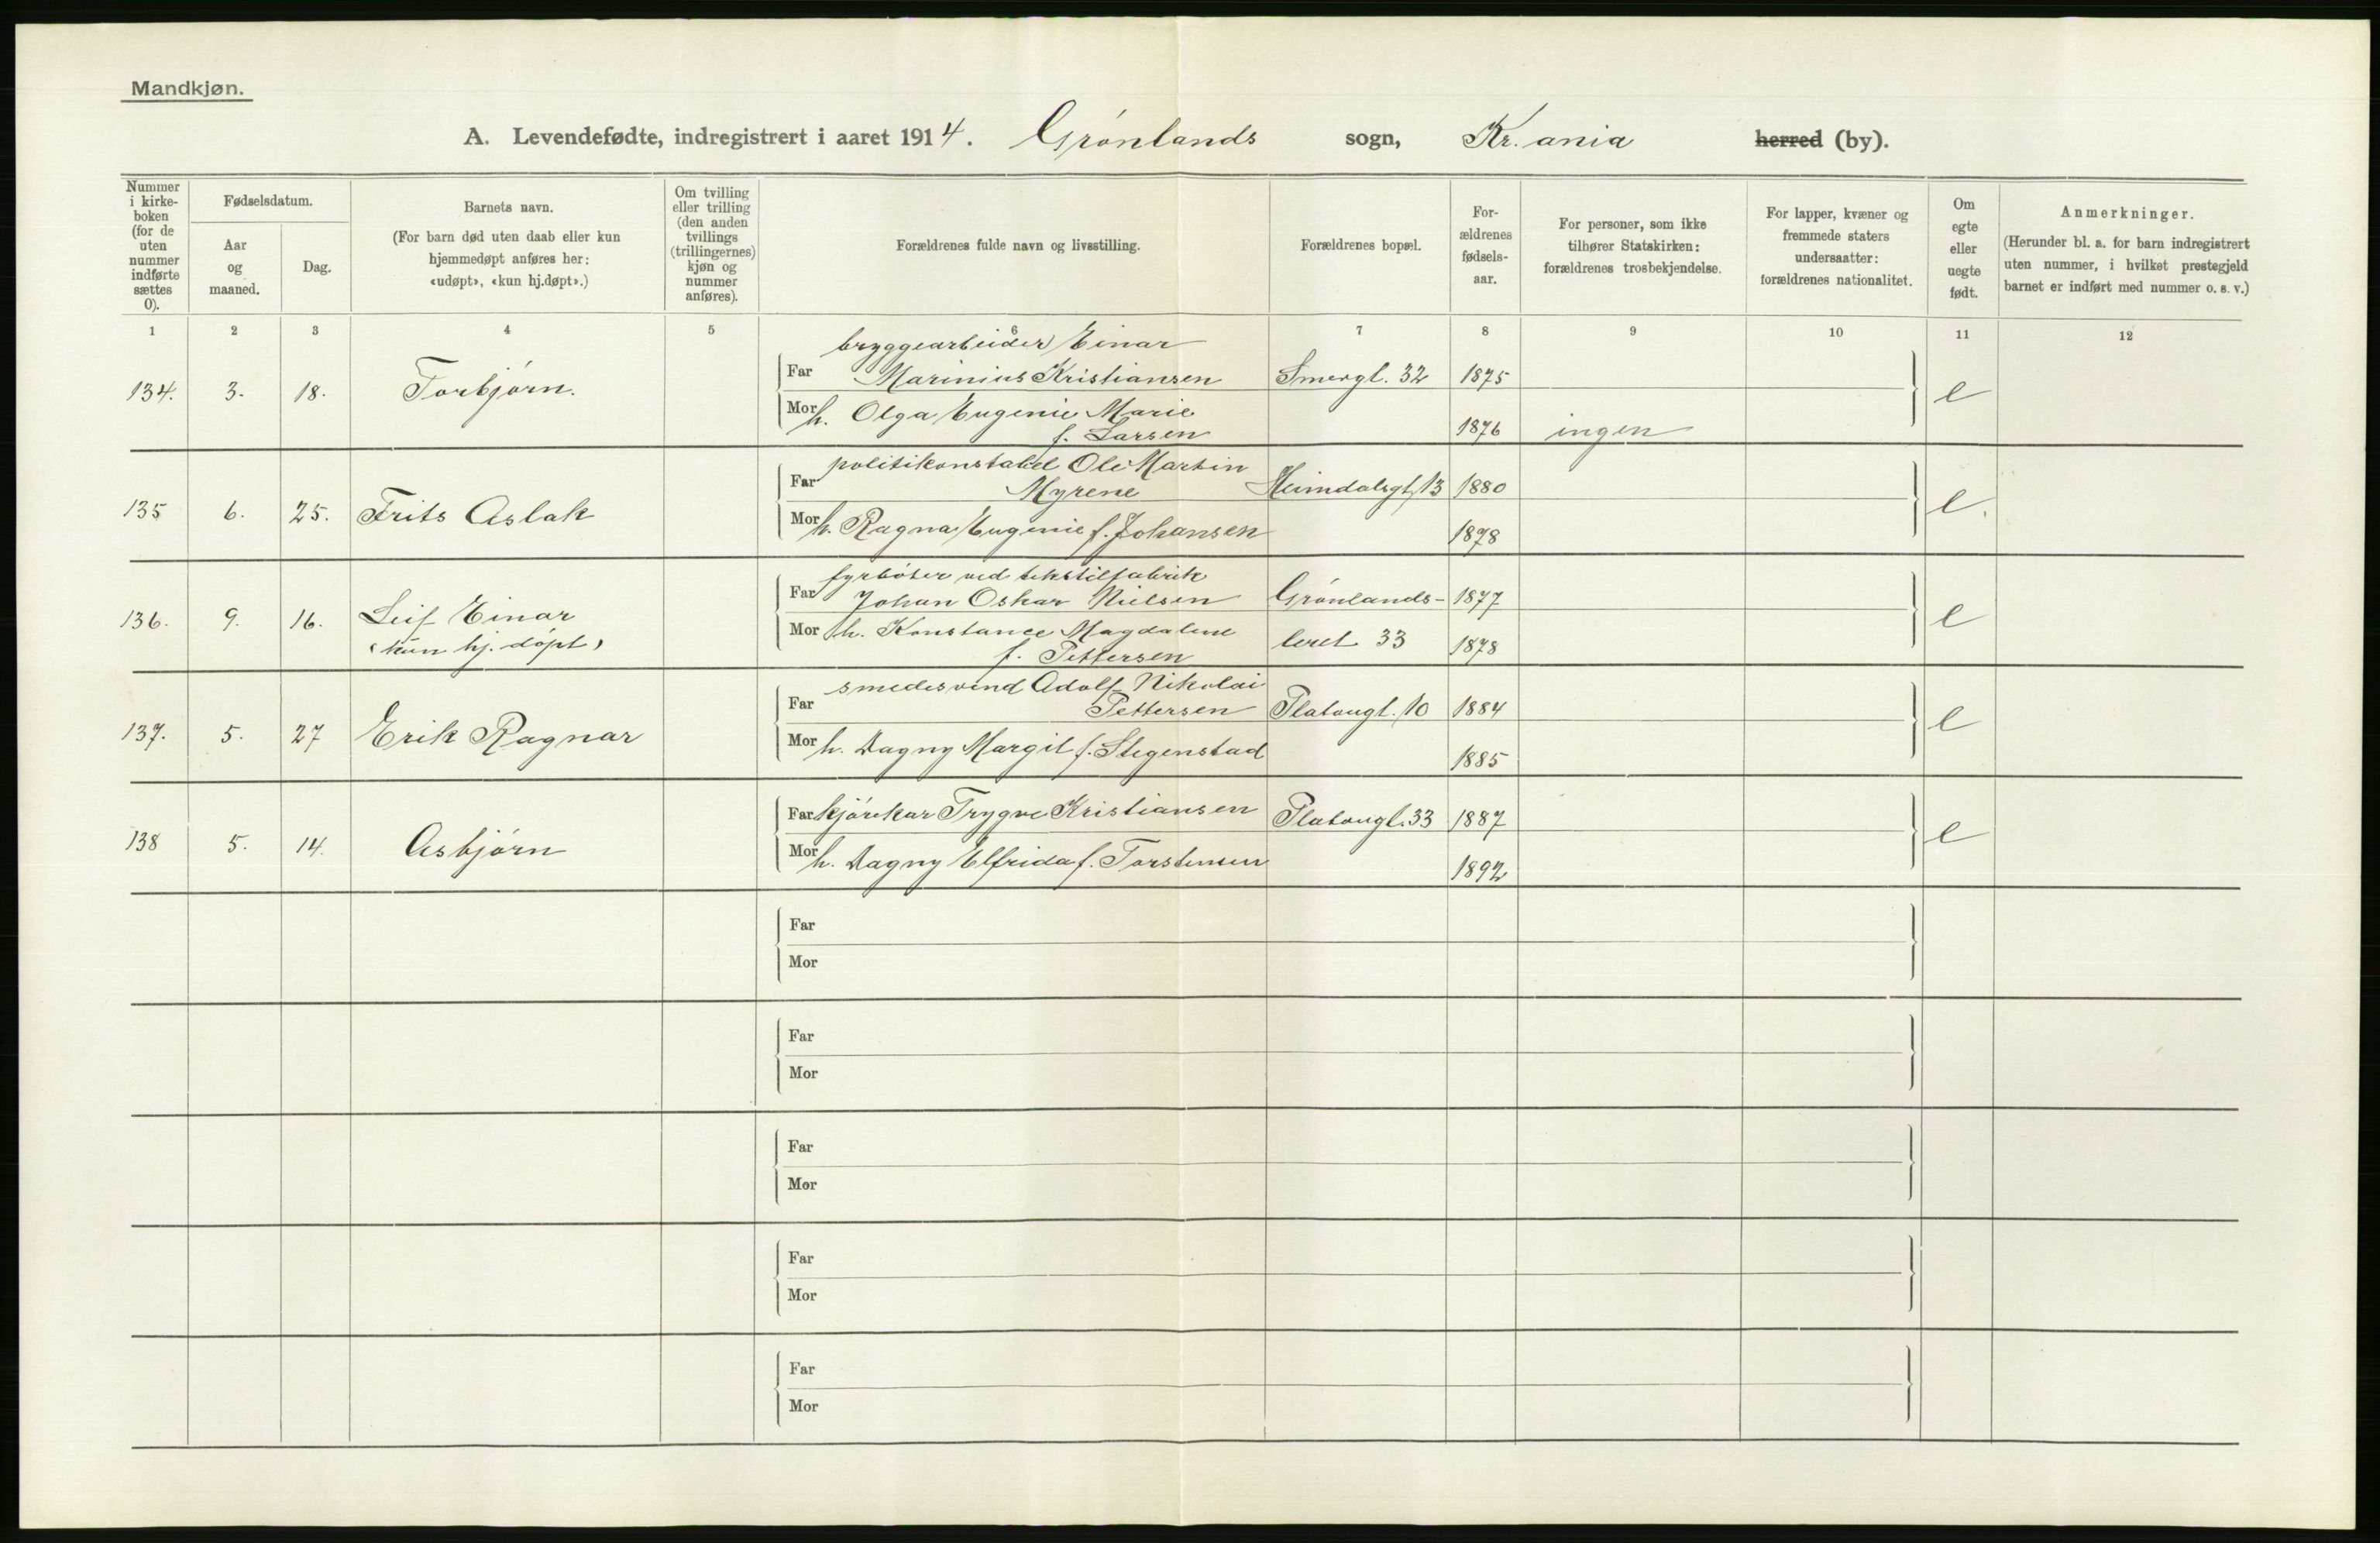 Mandkjøn.
A. Levendefødte, indregistrert i aaret 1914. Grönlands sogn, Kr.ania herred (by).
Nummer i kirke-boken (for de uten nummer indførte sættes 0).
Fødselsdatum.
Aar og maaned.
Dag.
Barnets navn.
(For barn død uten daab eller kun hjemmedøpt anføres her: «udøpt», «kun hj.døpt».)
Om tvilling eller trilling (den anden tvillings (trillingernes) kjøn og nummer anføres).
Forældrenes fulde navn og livsstilling.
Forældrenes bopæl.
For-ældrenes fødsels-aar.
For personer, som ikke tilhører Statskirken: forældrenes trosbekjendelse.
For lapper, kvæner og fremmede staters undersaatter: forældrenes nationalitet.
Om egte eller uegte født.
Anmerkninger.
(Herunder bl. a. for barn indregistrert uten nummer, i hvilket prestegjeld barnet er indført med nummer o. s. v.)
1 2 3 4 5 6 7 8 9 10 11 12
bryggearbeider Einar
134. 3. 18. Torbjörn. Far Marinius Kristiansen Smergt. 32 1875 e
Mor h. Olga Eugenie Marie
f. Larsen 1876 ingen
politikonstabel Ole Martin
135 6. 25. Frits Aslak Far Myrene Heimdalsgt. 13 1880 e.
Mor h. Ragna Eugenie f. Johansen 1878
fyrböter ved tekstilfabrik
136. 9. 16. Leif Einar Far Johan Oskar Nielsen Grönlands- 1877 e
‹kun hj. döpt› Mor h. Konstance Magdalene leret 33 1878
f. Pettersen
smedesvend Adolf Nikolai
137. 5. 27 Erik Ragnar Far Pettersen Platougt. 10 1884 e
Mor h. Dagny Margit f. Stegenstad 1885
138 5. 14. Asbjörn Far kjörekar Trygve Kristiansen Platougt. 33 1887 e
Mor h. Dagny Elfrida f. Torstensen 1892
Far
Mor
Far
Mor
Far
Mor
Far
Mor
Far
Mor